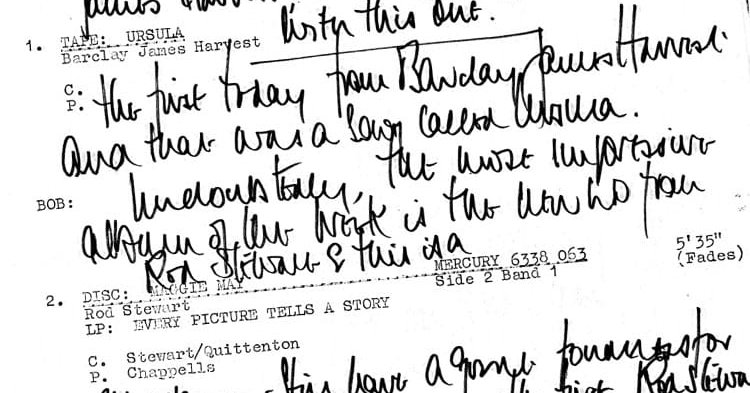 James
listen this one.
1. TAPE: URSULA
Barclay James Harvest
C.
P.
the first today from Barclay James Harvest
and that was a song called Ursula.
BOB: Undoubtedly, the most impressive
album of the week is the new LP from
Rod Stewart & this is a
2. DISC: MAGGIE MAY MERCURY 6338 063 5'35"
Rod Stewart Side 2 Band 1 (Fades)
LP: EVERY PICTURE TELLS A STORY
C. Stewart/Quittenton
P. Chappells
this have a for
first Rod Stewa